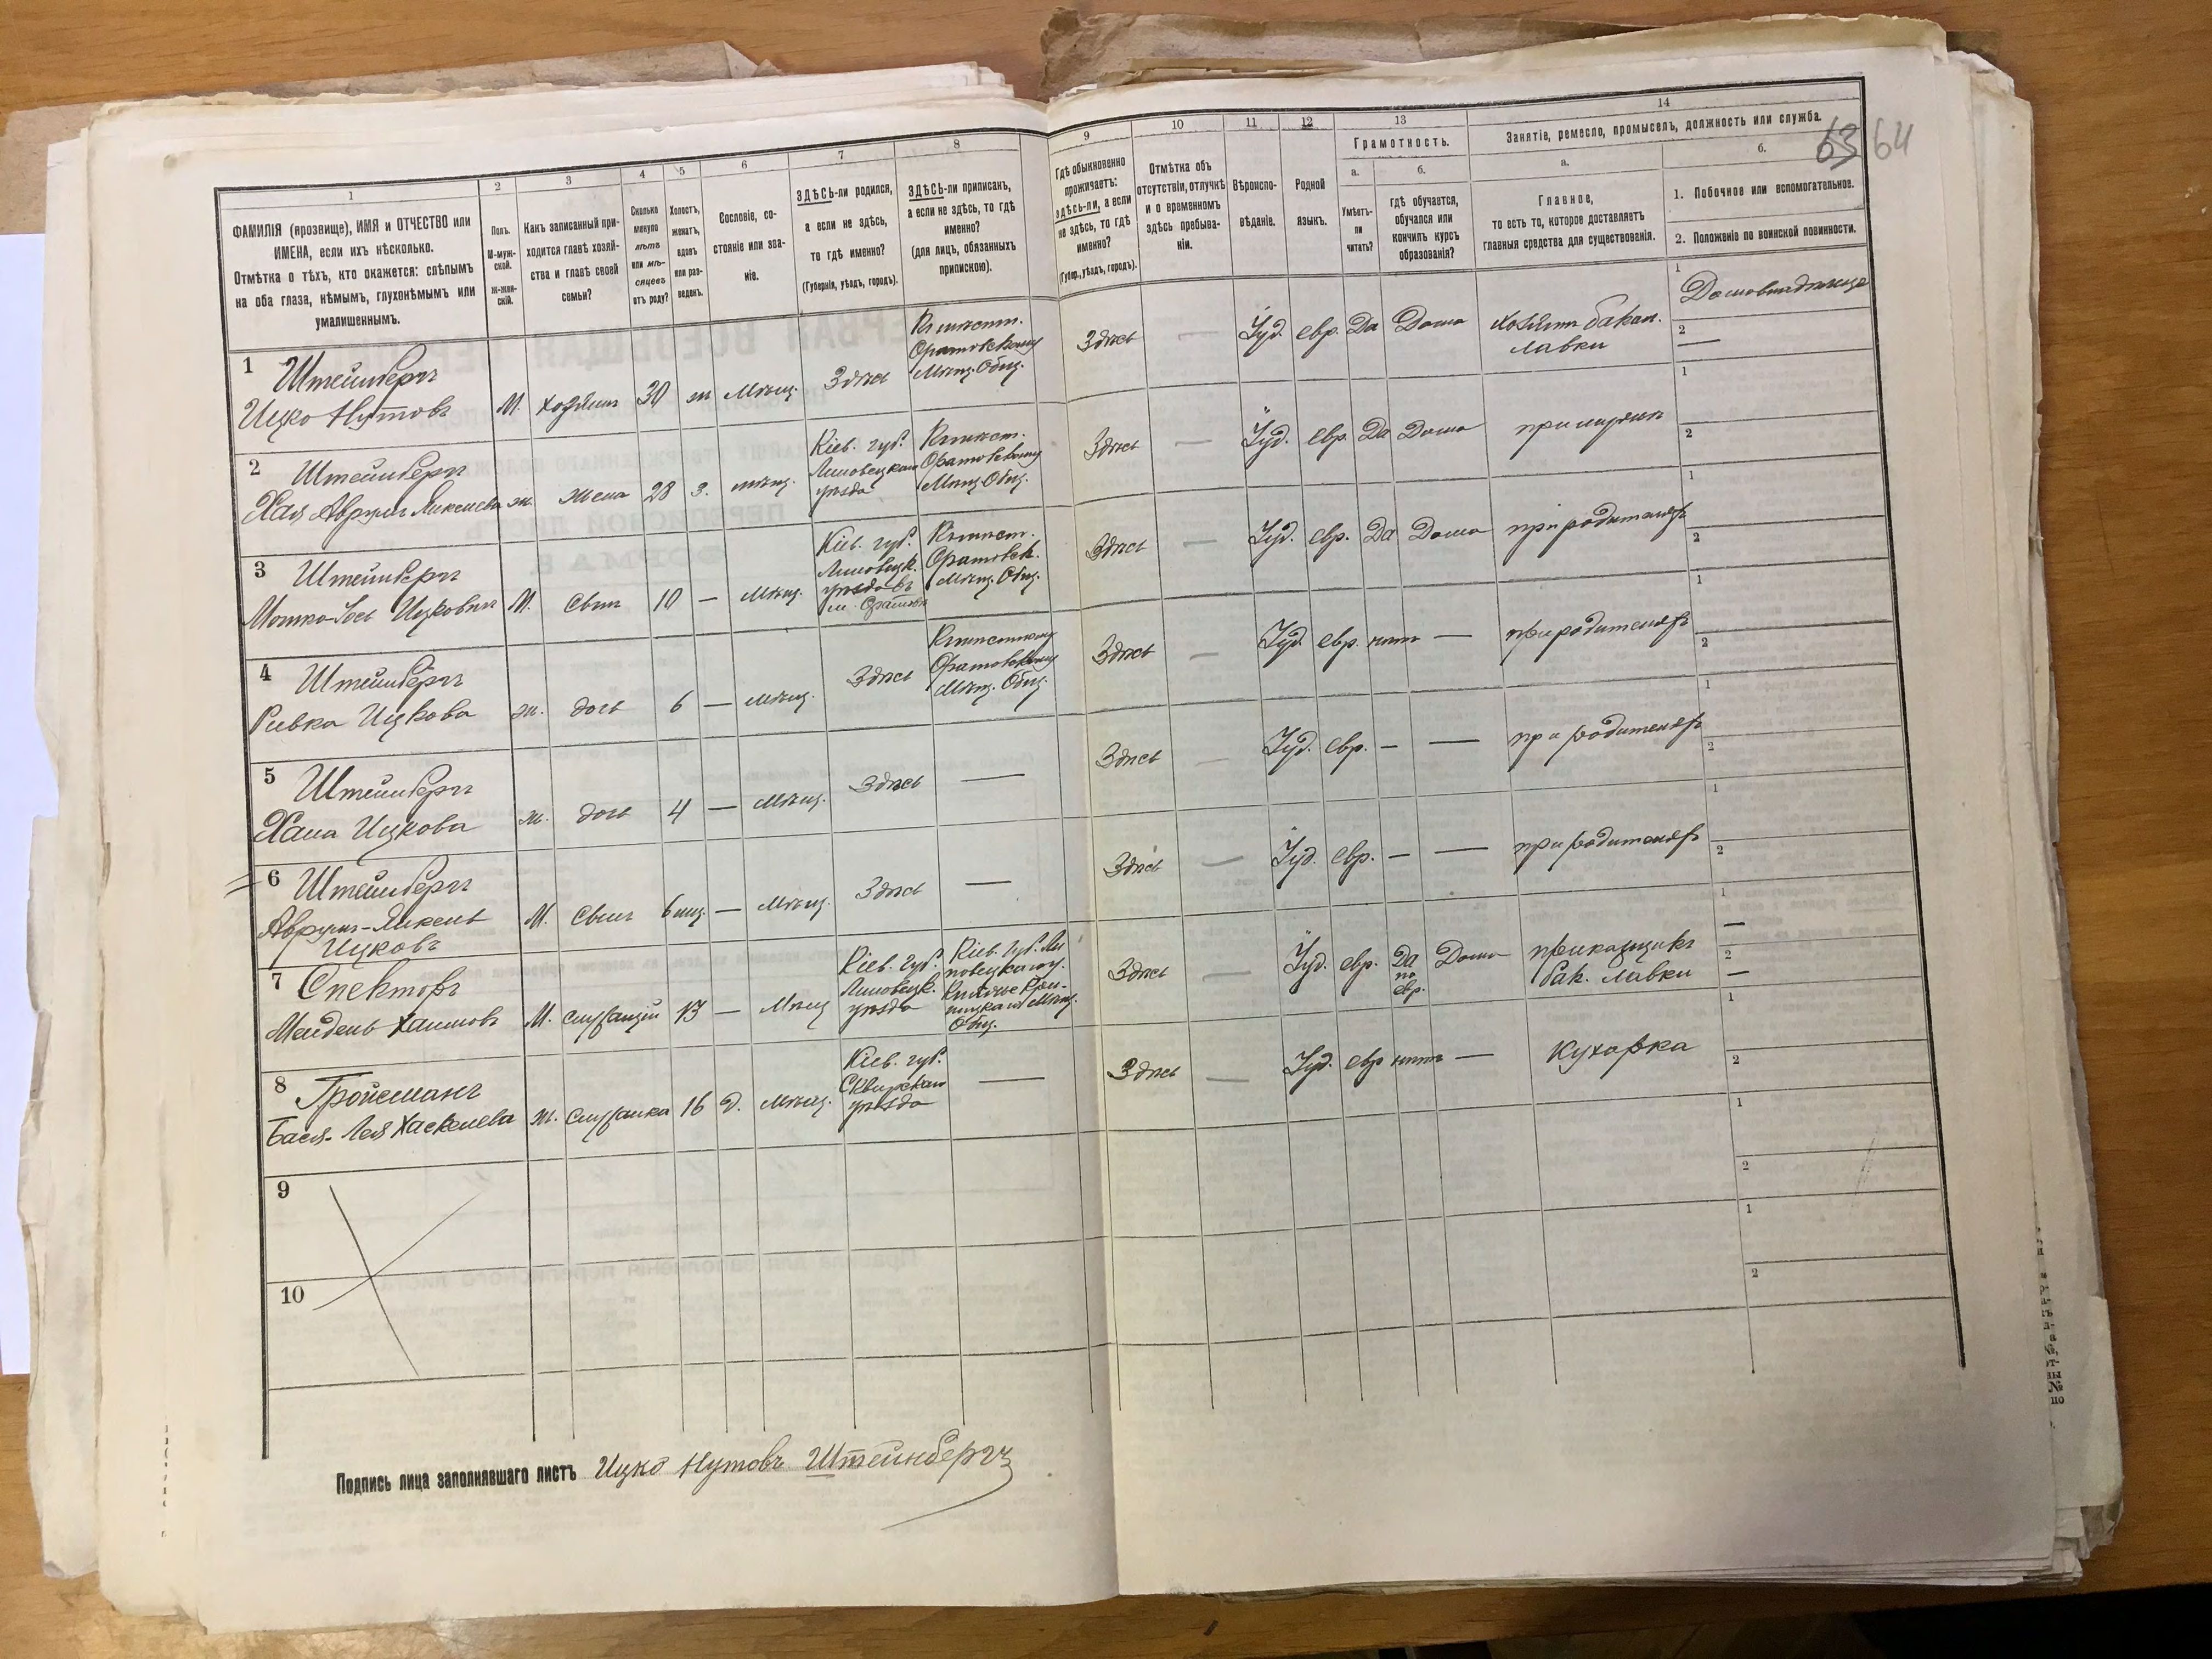 63 64
1 2 3 4 5 6 7 8 9 10 11 12 13 14
ФАМИЛІЯ (прозвище), ИМЯ и ОТЧЕСТВО или
ИМЕНА, если ихъ нѣсколько.
Отмѣтка о тѣхъ, кто окажется: слѣпымъ
на оба глаза, нѣмымъ, глухонѣмымъ или
умалишеннымъ.
Полъ.
М-муж-
ской.
Ж-жен-
скій.
Какъ записанный при-
ходится главѣ хозяй-
ства и главѣ своей
семьи?
Сколько
минуло
лѣтъ
или мѣ-
сяцевъ
отъ роду?
Холостъ,
женатъ,
вдовъ
или раз-
веденъ.
Сословіе, со-
стояніе или зва-
ніе.
ЗДѢСЬ-ли родился,
а если не здѣсь,
то гдѣ именно?
(Губернія, уѣздъ, городъ).
ЗДѢСЬ-ли приписанъ,
а если не здѣсь, то гдѣ
именно?
(для лицъ, обязанныхъ
припискою).
Гдѣ обыкновенно
проживаетъ:
здѣсь-ли, а если
не здѣсь, то гдѣ
именно?
(Губер., уѣздъ, городъ).
Отмѣтка объ
отсутствіи, отлучкѣ
и о временномъ
здѣсь пребыва-
ніи.
Вѣроиспо-
вѣданіе.
Родной
языкъ.
Грамотность.
а.
Умѣетъ-
ли
читать?
б.
гдѣ обучается,
обучался или
кончилъ курсъ
образованія?
Занятіе, ремесло, промыселъ, должность или служба.
а.
Главное,
то есть то, которое доставляетъ
главныя средства для существованія.
б.
1. Побочное или вспомогательное.
2. Положеніе по воинской повинности.
1 Штейнбергъ
Ицко Нутовъ
М. хозяинъ 30 ж Мѣщ. Здѣсь
Оратовскому
Мѣщ. Общ.
Здѣсь — Іуд. евр. Да Дома
хозяинъ бакал.
лавки
1
2 —
2 Штейнбергъ
Хая Аврумъ
ж. жена 28 з. мѣщ.
Кіев. губ.
Липовецкаго
уѣзда
Оратовскому
Мѣщ. Общ.
Здѣсь — Іуд. евр. Да Дома при мужѣ
1
2
3 Штейнбергъ
Мошко-Іось Ицковичъ
М. сынъ 10 — Мѣщ.
Кіев. губ.
Липовецк.
уѣзда въ
м. Оратовѣ
Оратовск.
Мѣщ. Общ.
Здѣсь — Іуд. евр. Да Дома при родителяхъ
1
2
4 Штейнбергъ
Ривка Ицкова
ж. дочь 6 — мѣщ. Здѣсь
Оратовскому
Мѣщ. Общ.
Здѣсь — Іуд. евр. нѣтъ — при родителяхъ
1
2
5 Штейнбергъ
Хана Ицкова
ж. дочь 4 — мѣщ. Здѣсь —
Здѣсь — Іуд. евр. — — при родителяхъ
1
2
6 Штейнбергъ
Аврумъ-Микель
Ицковъ
М. сынъ 6 мц. — Мѣщ. Здѣсь —
Здѣсь — Іуд. евр. — — при родителяхъ
1
2
7 Спекторъ
Мендель Хаимовъ
М. служащій 13 — Мѣщ
Кіев. губ.
Липовецк.
уѣзда
Кіев. губ. Ли
повецкаго у.
Общ.
Здѣсь — Іуд. евр. Да
по
евр.
Дома
прикащикъ
бак. лавки
1 —
2 —
8 Гройсманъ
Бася-Лея Хаскелева
ж. служанка 16 д. мѣщ.
Кіев. губ.
Сквирскаго
уѣзда
—
Здѣсь — Іуд. евр нѣтъ — Кухарка
1
2
9
1
2
10
1
2
Подпись лица заполнявшаго листъ Ицко Нутовъ Штейнбергъ